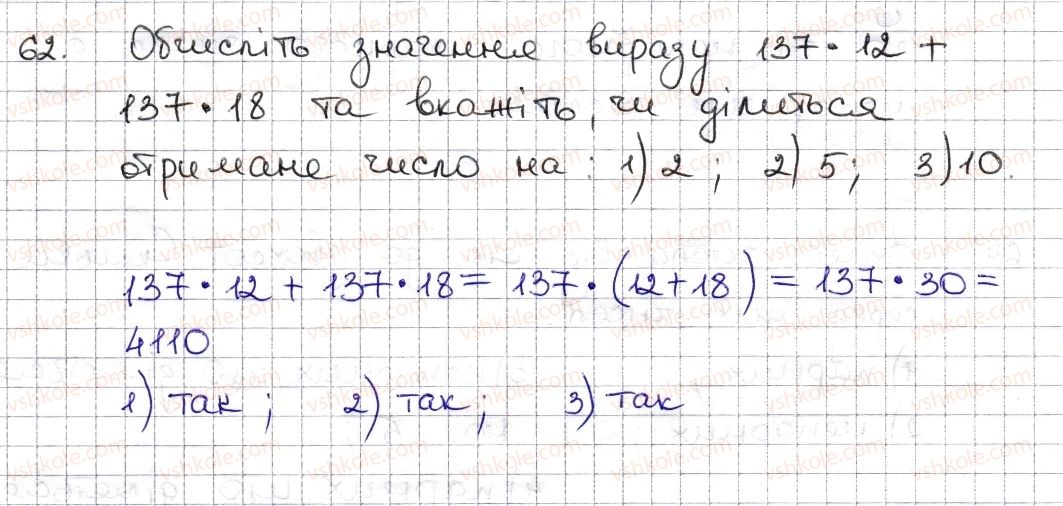 62. Обчисліть значення виразу 137 · 12 +
137 · 18 та вкажіть, чи ділиться
отримане число на: 1) 2; 2) 5; 3) 10.
137 · 12 + 137 · 18 = 137 · (12 + 18) = 137 · 30 =
4110
1) так; 2) так; 3) так